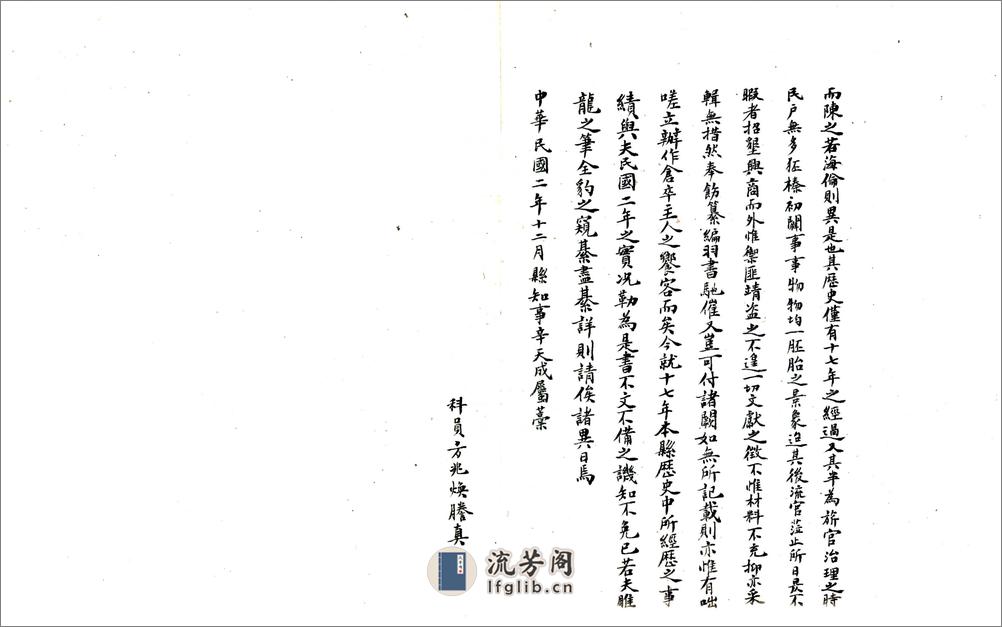 而陳之若海倫則異是也其歷史僅有十七年之經過又其半為旂官治理之時
民戶無多狉榛初闢事事物物均一胚胎之景象迨其後流官蒞止所日畏不
暇者招墾興商而外惟禦匪靖盜之不遑一切文獻之徵不惟材料不充抑亦采
輯無措然奉飭纂編羽書馳催又豈可付諸闕如無所記載則亦惟有咄
嗟立辦作倉卒主人之饗客而矣今就十七年本縣歷史中所經歷之事
績與夫民國二年之實况勒為是書不文不備之譏知不免已若夫雕
龍之筆全豹之窺綦盡綦詳則請俟諸異日焉
中華民國二年十二月縣知事辛天成屬藁
科員方兆煥謄真
流芳阁
lfglib.cn